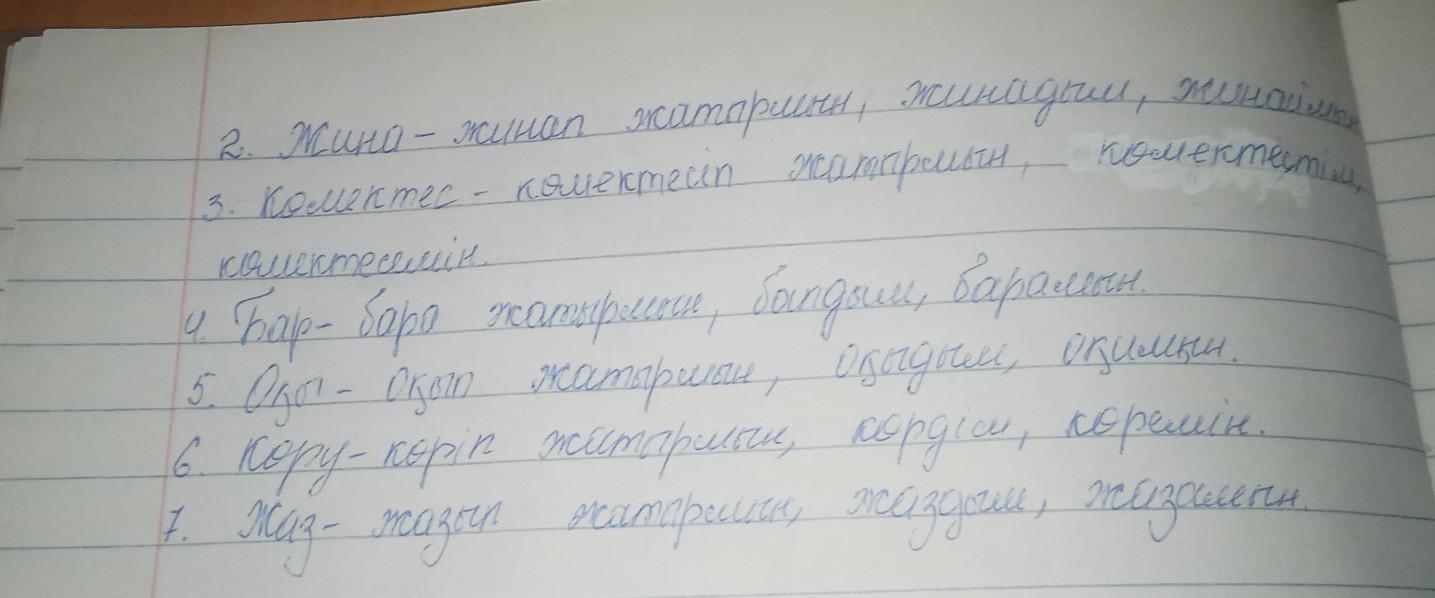 2. Жина - жинап жатырмын, жинадым, жинаймын
3. Көмектес - көмектесіп жатырмын, көмектестім,
көмектесемін.
4. Бар - бара жатырмын, бапдым, барамын.
5. Оқы - Оқып жатырмын, оқыдым, оқимын.
6. Көру - көріп жатырмын, көрдім, көремін.
7. Жаз - жазып жатырмын, жаздым, жазамын.